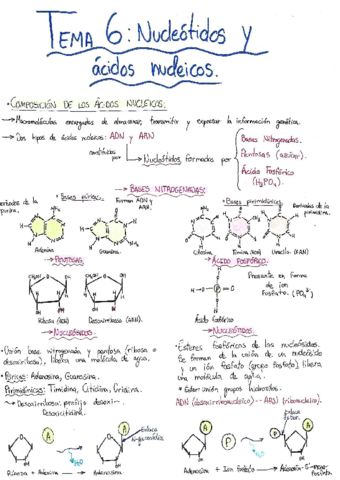 TEMA 6: Nucleótidos y
ácidos nucleicos.
• COMPOSICIÓN DE LOS ÁCIDOS NUCLEICOS:
→ Macromoléculas encargadas de almacenar, transmitir y expresar la información genética.
→ Dos tipos de ácidos nucleicos: ADN y ARN
constituidos por → Nucleótidos formados por
Bases Nitrogenadas.
Pentosas (azúcar).
Ácido Fosfórico
(H3PO4).
→ BASES NITROGENADAS:
• Bases púricas:
Forman ADN y ARN.
• Bases pirimidínicas:
Derivadas de la
Adenina
Guanina
Citosina
Timina (ADN)
Uracilo (ARN)
→ PENTOSAS
Ribosa (ARN)
Desoxirribosa (ADN).
→ ÁCIDO FOSFÓRICO.
Presente en forma
de ion
fosfato.
Ácido fosfórico
→ NUCLEÓSIDOS.
• Unión base nitrogenada y pentosa (ribosa o
desoxirribosa), libera una molécula de agua.
• Púricos: Adenosina, Guanosina.
Pirimidínicos: Timidina, Citidina, Uridina.
→ Desoxirribosa: prefijo desoxi-.
Desoxicitidina.
→ NUCLEÓTIDOS.
• Ésteres fosfóricos de los nucleósidos.
Se forman de la unión de un nucleósido
y un ion fosfato (grupo fosfato), libera
una molécula de agua.
* Éster: unión grupos hidroxilos.
ADN (desoxirribonucleico) -- ARN (ribonucleico).
A
H2O
A
Enlace
N-glucosídico
Ribosa + Adenina → Adenosina
A
P
H2O
A
Enlace
éster
P
Adenosina + Ion fosfato → Adenosín-5'-mono-
fosfato